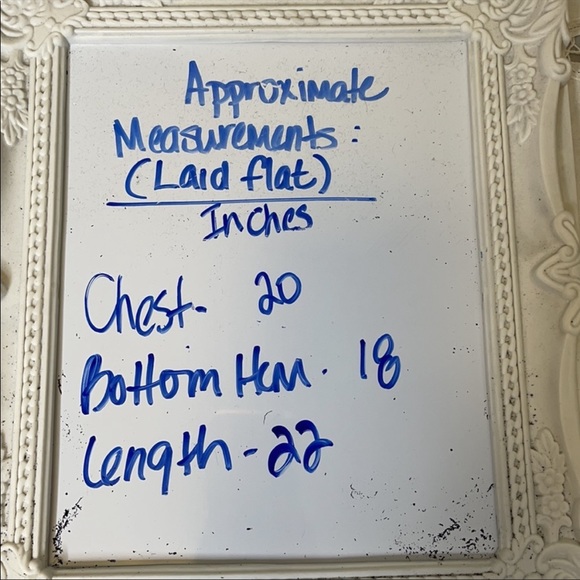 Approximate
Measurements:
(Laid flat)
Inches
Chest- 20
Bottom Hem. 18
Length - 22